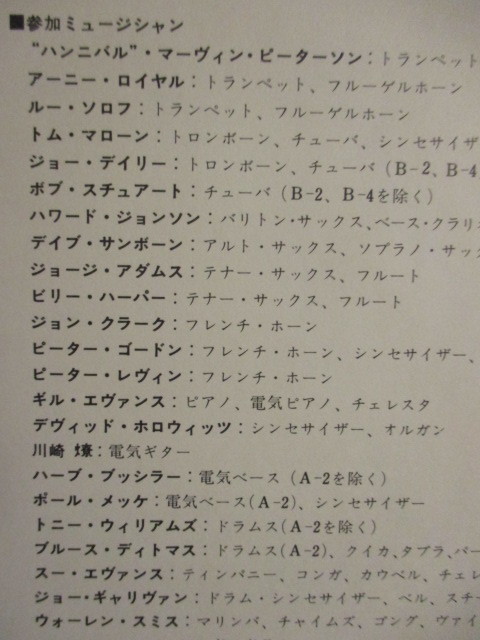 ■参加ミュージシャン
“ハンニバル”・マーヴィン・ピーターソン：トランペット
アーニー・ロイヤル：トランペット、フルーゲルホーン
ルー・ソロフ：トランペット、フルーゲルホーン
トム・マローン：トロンボーン、チューバ、シンセサイザ
ジョー・デイリー：トロンボーン、チューバ（B-2、B-4
ボブ・スチュアート：チューバ（B-2、B-4を除く）
ハワード・ジョンソン：バリトン・サックス、ベース・クラリ
デイブ・サンボーン：アルト・サックス、ソプラノ・サッ
ジョージ・アダムス：テナー・サックス、フルート
ビリー・ハーパー：テナー・サックス、フルート
ジョン・クラーク：フレンチ・ホーン
ピーター・ゴードン：フレンチ・ホーン、シンセサイザー、
ピーター・レヴィン：フレンチ・ホーン
ギル・エヴァンス：ピアノ、電気ピアノ、チェレスタ
デヴィッド・ホロウィッツ：シンセサイザー、オルガン
川崎 燎：電気ギター
ハーブ・ブッシラー：電気ベース（A-2を除く）
ポール・メッケ：電気ベース(A-2)、シンセサイザー
トニー・ウィリアムズ：ドラムス(A-2を除く)
ブルース・ディトマス：ドラムス(A-2)、クイカ、タブラ、パー
スー・エヴァンス：ティンパニー、コンガ、カウベル、チェレ
ジョー・ギャリヴァン：ドラム・シンセサイザー、ベル、スチー
ウォーレン・スミス：マリンバ、チャイムズ、ゴング、ヴァイ